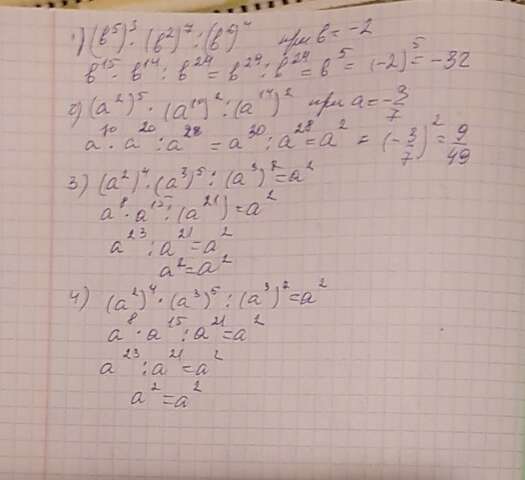 1) (b⁵)³ · (b²)⁷ : (b⁶)⁴ при b = -2
b¹⁵ · b¹⁴ : b²⁴ = b²⁹ : b²⁴ = b⁵ = (-2)⁵ = -32
2) (a²)⁵ · (a¹⁰)² : (a¹⁴)² при a = -3/7
a¹⁰ · a²⁰ : a²⁸ = a³⁰ : a²⁸ = a² = (-3/7)² = 9/49
3) (a²)⁴ · (a³)⁵ : (a³)⁷ = a²
a⁸ · a¹⁵ : (a²¹) = a²
a²³ : a²¹ = a²
a² = a²
4) (a²)⁴ · (a³)⁵ : (a³)² = a²
a⁸ · a¹⁵ : a²¹ = a²
a²³ : a²¹ = a²
a² = a²